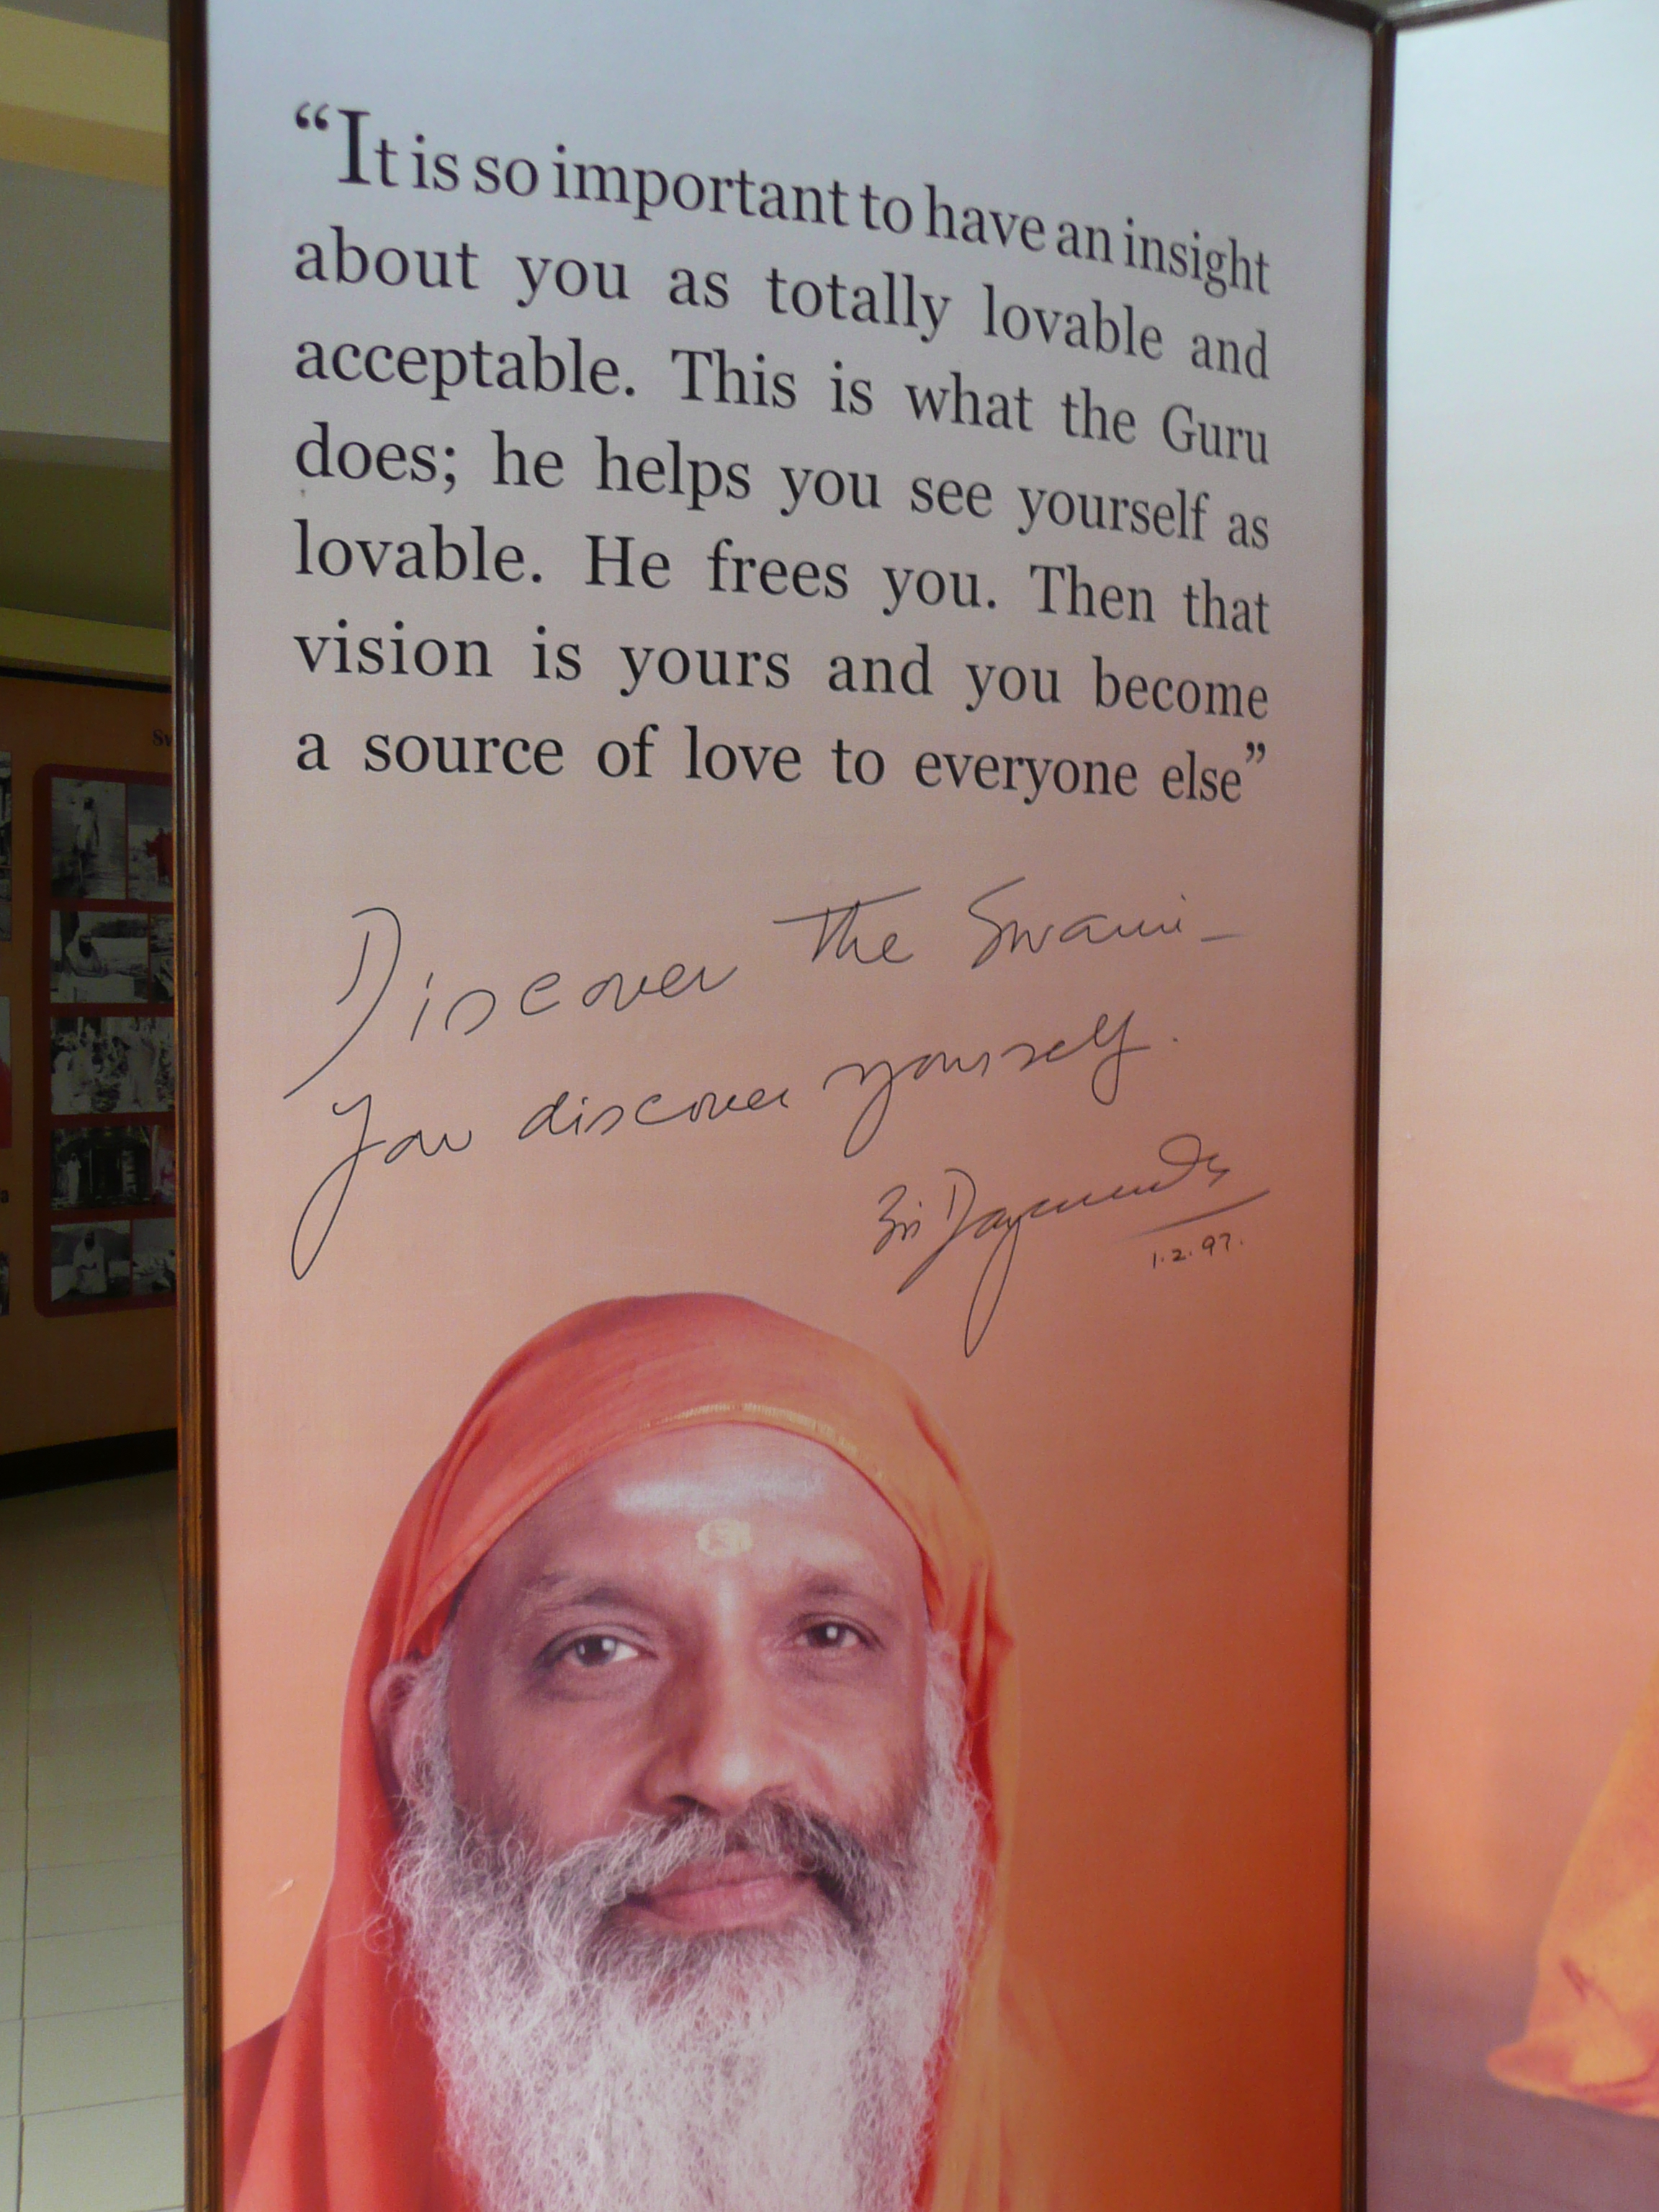 “It is so important to have an insight
about you as totally lovable and
acceptable. This is what the Guru
does; he helps you see yourself as
lovable. He frees you. Then that
vision is yours and you become
a source of love to everyone else”
Discover the Swami –
You discover yourself.
1.2.97.